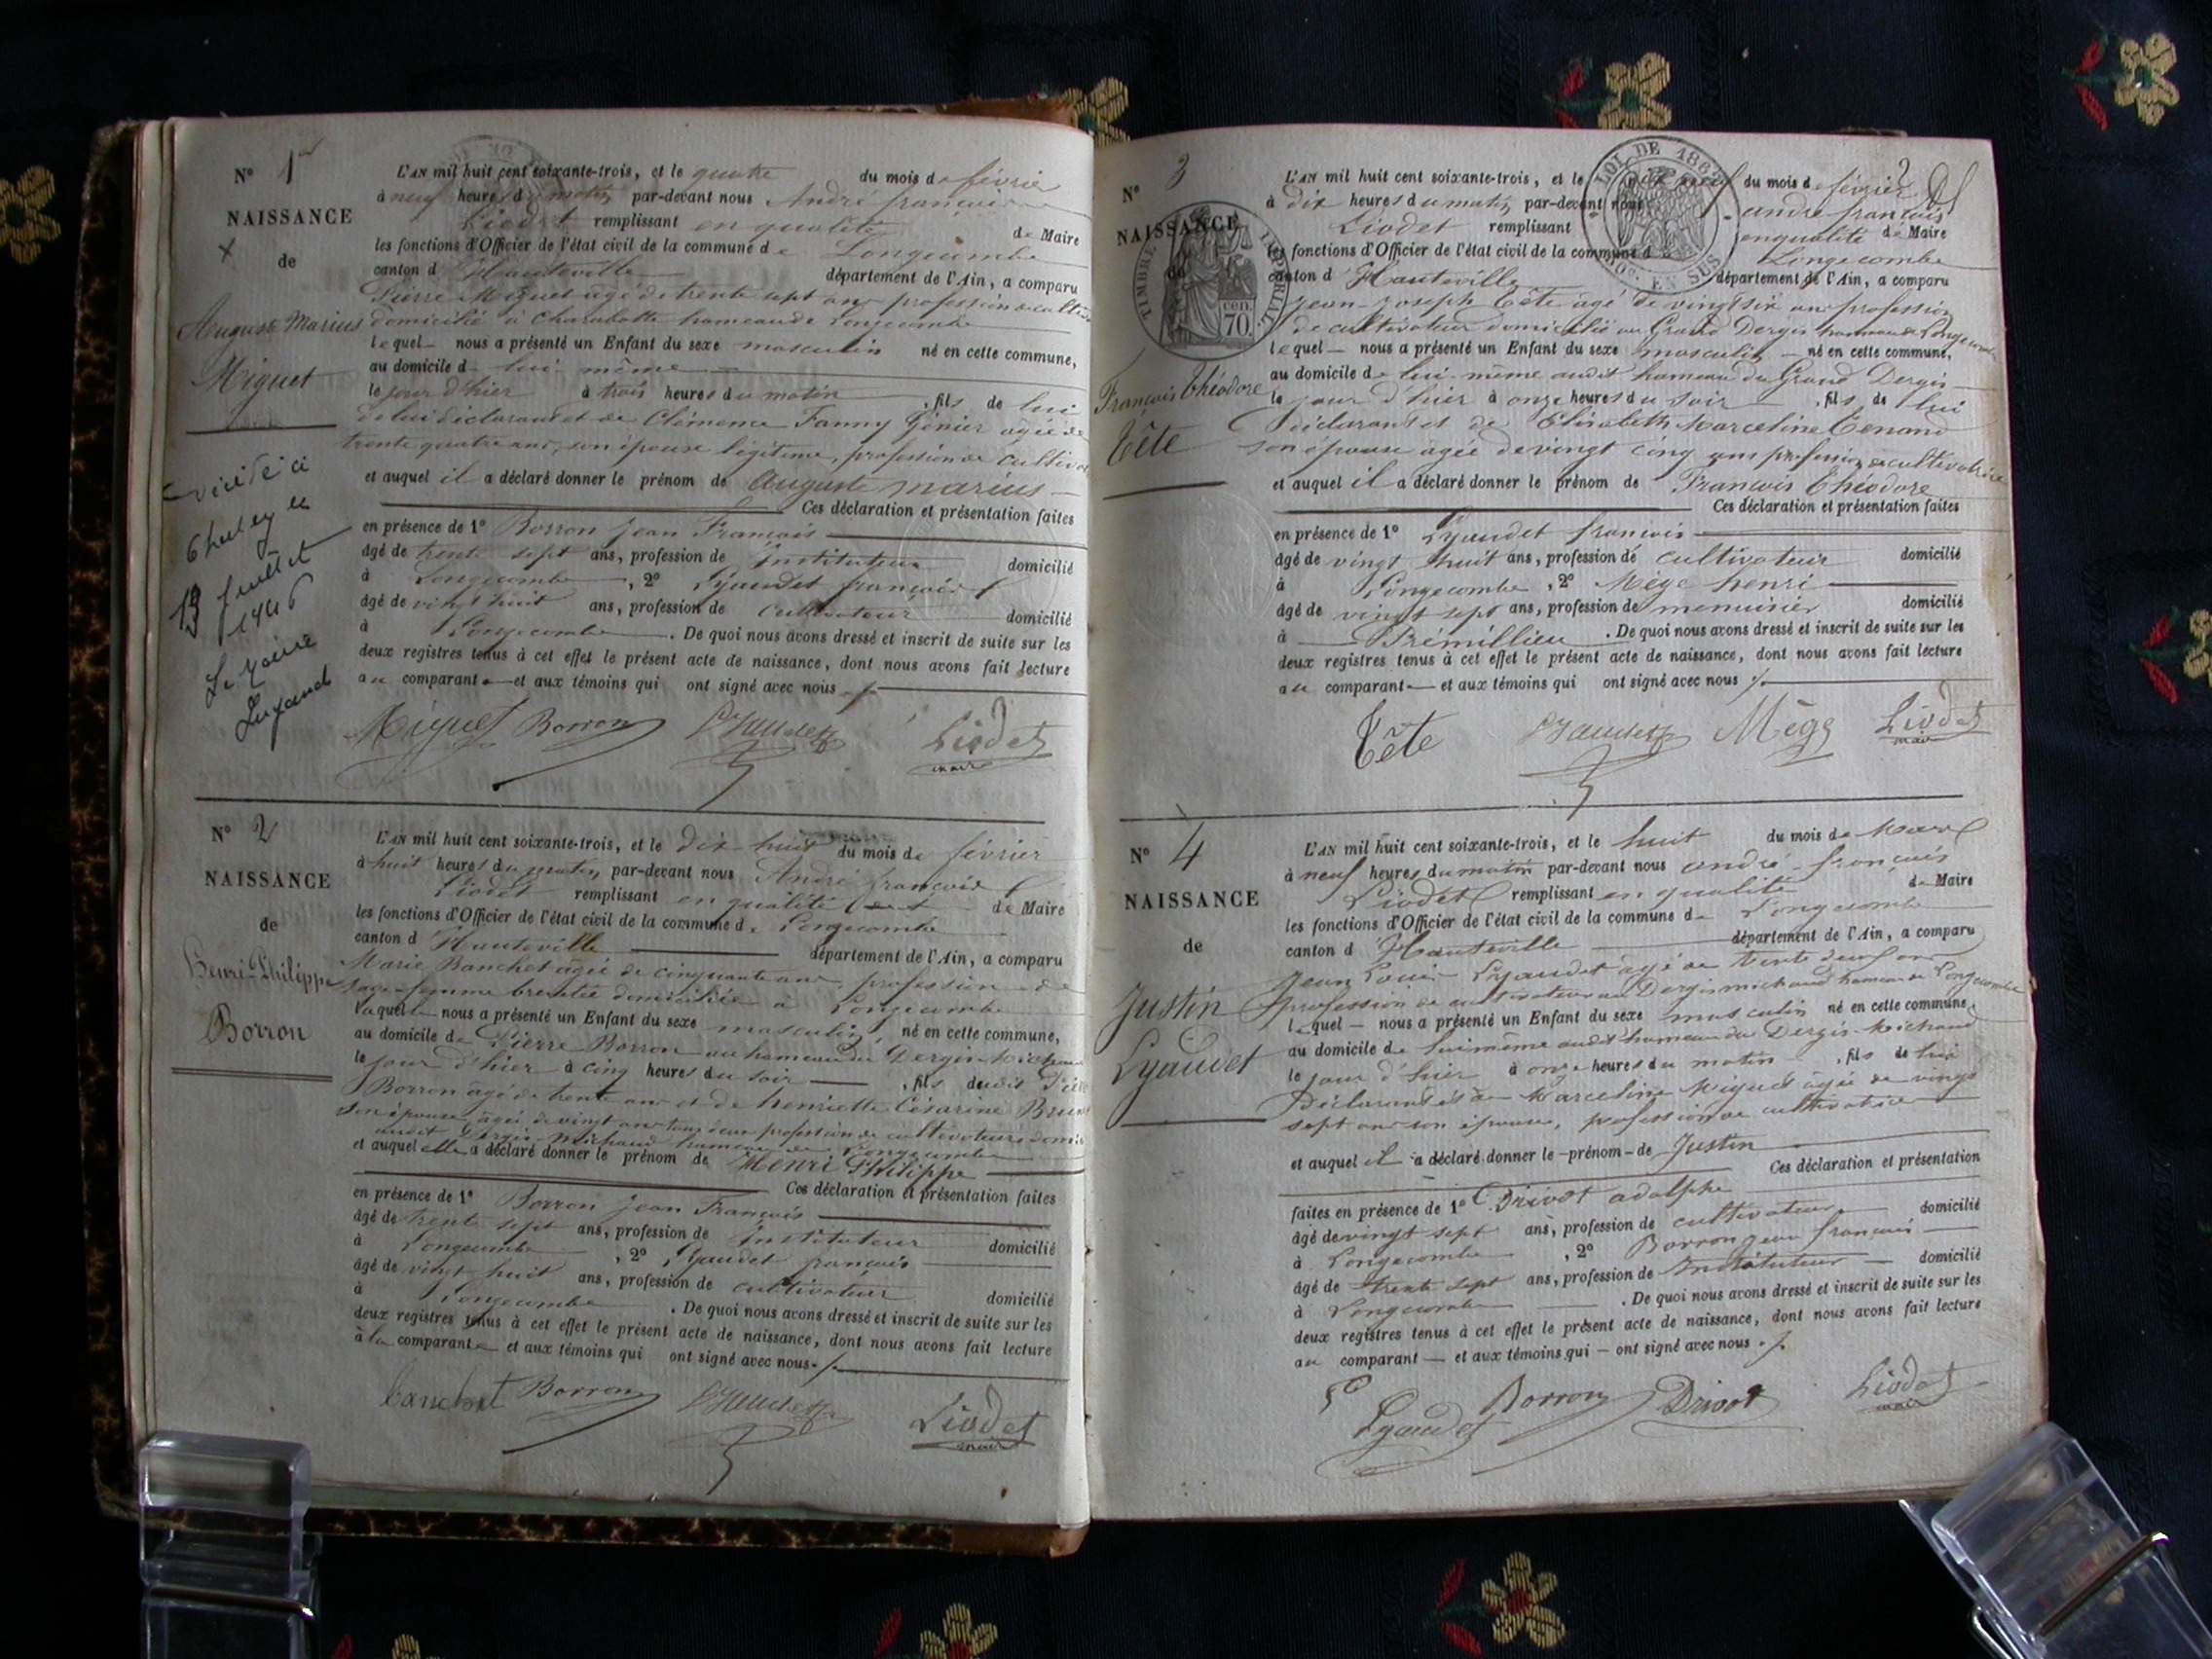 N° 1er
NAISSANCE
de
Auguste Marius
Miguet
décédé à
13 juillet
1946
Le Maire
L'AN mil huit cent soixante-trois, et le quatre du mois de février
à neuf heures du matin par-devant nous André françois
Liodet remplissant en qualité de Maire
les fonctions d'Officier de l'état civil de la commune de Longecombe
canton d'Hauteville département de l'Ain, a comparu
Pierre Miguet âgé de trente sept ans profession de
domicilié à Charabotte hameau de Longecombe
lequel nous a présenté un Enfant du sexe masculin né en cette commune,
au domicile de lui même
le jour d'hier à trois heures du matin, fils de lui
de lui déclarant et de Clémence Fanny Génier âgée de
trente quatre ans, son épouse légitime, profession de
et auquel il a déclaré donner le prénom de Auguste marius
Ces déclaration et présentation faites
en présence de 1° Borron Jean François
âgé de trente sept ans, profession de Instituteur domicilié
à Longecombe, 2° Lyaudet françois
âgé de vingt huit ans, profession de cultivateur domicilié
à Longecombe. De quoi nous avons dressé et inscrit de suite sur les
deux registres tenus à cet effet le présent acte de naissance, dont nous avons fait lecture
au comparant et aux témoins qui ont signé avec nous
Miguet Borron Lyaudet Liodet
maire
N° 2
NAISSANCE
de
Henri Philippe
Borron
L'AN mil huit cent soixante-trois, et le dix huit du mois de février
à huit heures du matin par-devant nous André françois
Liodet remplissant en qualité de Maire
les fonctions d'Officier de l'état civil de la commune de Longecombe
canton d'Hauteville département de l'Ain, a comparu
Marie Banchet âgée de cinquante ans, profession de
sage-femme brevetée domiciliée à Longecombe
laquelle nous a présenté un Enfant du sexe masculin, né en cette commune,
au domicile de Pierre Borron au hameau du Dergis
le jour d'hier à cinq heures du soir, fils dudit
Borron âgé de trente ans et de henriette Césarine
son épouse âgée de vingt ans tous deux profession de cultivateurs
audit Dergis-michaud hameau de Longecombe
et auquel elle a déclaré donner le prénom de Henri Philippe
Ces déclaration et présentation faites
en présence de 1° Borron Jean François
âgé de trente sept ans, profession de Instituteur domicilié
à Longecombe, 2° Lyaudet françois
âgé de vingt huit ans, profession de cultivateur domicilié
à Longecombe. De quoi nous avons dressé et inscrit de suite sur les
deux registres tenus à cet effet le présent acte de naissance, dont nous avons fait lecture
à la comparante et aux témoins qui ont signé avec nous
banchet Borron Lyaudet Liodet
maire
N° 3
NAISSANCE
de
François théodore
Tête
TIMBRE IMPÉRIAL
70 cen.
LOI DE 1862
10c. EN SUS
L'AN mil huit cent soixante-trois, et le dix neuf du mois de février
à dix heures du matin par-devant nous andré françois
Liodet remplissant en qualité de Maire
les fonctions d'Officier de l'état civil de la commune de Longecombe
canton d'Hauteville département de l'Ain, a comparu
jean-joseph Tête âgé de vingt six ans profession
de cultivateur domicilié au Grand Dergis hameau de Longecombe
lequel nous a présenté un Enfant du sexe masculin né en cette commune,
au domicile de lui-même audit hameau du Grand Dergis
le jour d'hier à onze heures du soir, fils de lui
déclarant et de Elisabeth Marceline Tenand
son épouse âgée de vingt cinq ans profession de cultivatrice
et auquel il a déclaré donner le prénom de François théodore
Ces déclaration et présentation faites
en présence de 1° Lyaudet françois
âgé de vingt huit ans, profession de cultivateur domicilié
à Longecombe, 2° Mège henri
âgé de vingt sept ans, profession de menuisier domicilié
à Prémillieu. De quoi nous avons dressé et inscrit de suite sur les
deux registres tenus à cet effet le présent acte de naissance, dont nous avons fait lecture
au comparant et aux témoins qui ont signé avec nous
Tête Lyaudet Mège Liodet
maire
N° 4
NAISSANCE
de
Justin
Lyaudet
L'AN mil huit cent soixante-trois, et le huit du mois de Mars
à neuf heures du matin par-devant nous andré françois
Liodet remplissant en qualité de Maire
les fonctions d'Officier de l'état civil de la commune de Longecombe
canton d'Hauteville département de l'Ain, a comparu
Jean Louis Lyaudet âgé de trente deux ans
profession de cultivateur au Dergis michaud hameau de Longecombe
lequel nous a présenté un Enfant du sexe masculin né en cette commune,
au domicile de lui même audit hameau du Dergis-Michaud
le jour d'hier à onze heures du matin, fils de lui
Déclarant et de Marceline Miguet âgée de vingt
sept ans son épouse, profession de cultivatrice
et auquel il a déclaré donner le prénom de Justin
Ces déclaration et présentation
faites en présence de 1° Drivot adolphe
âgé de vingt sept ans, profession de cultivateur domicilié
à Longecombe, 2° Borron jean françois
âgé de trente sept ans, profession de Instituteur domicilié
à Longecombe. De quoi nous avons dressé et inscrit de suite sur les
deux registres tenus à cet effet le présent acte de naissance, dont nous avons fait lecture
au comparant et aux témoins qui ont signé avec nous
Lyaudet Borron Drivot Liodet
maire